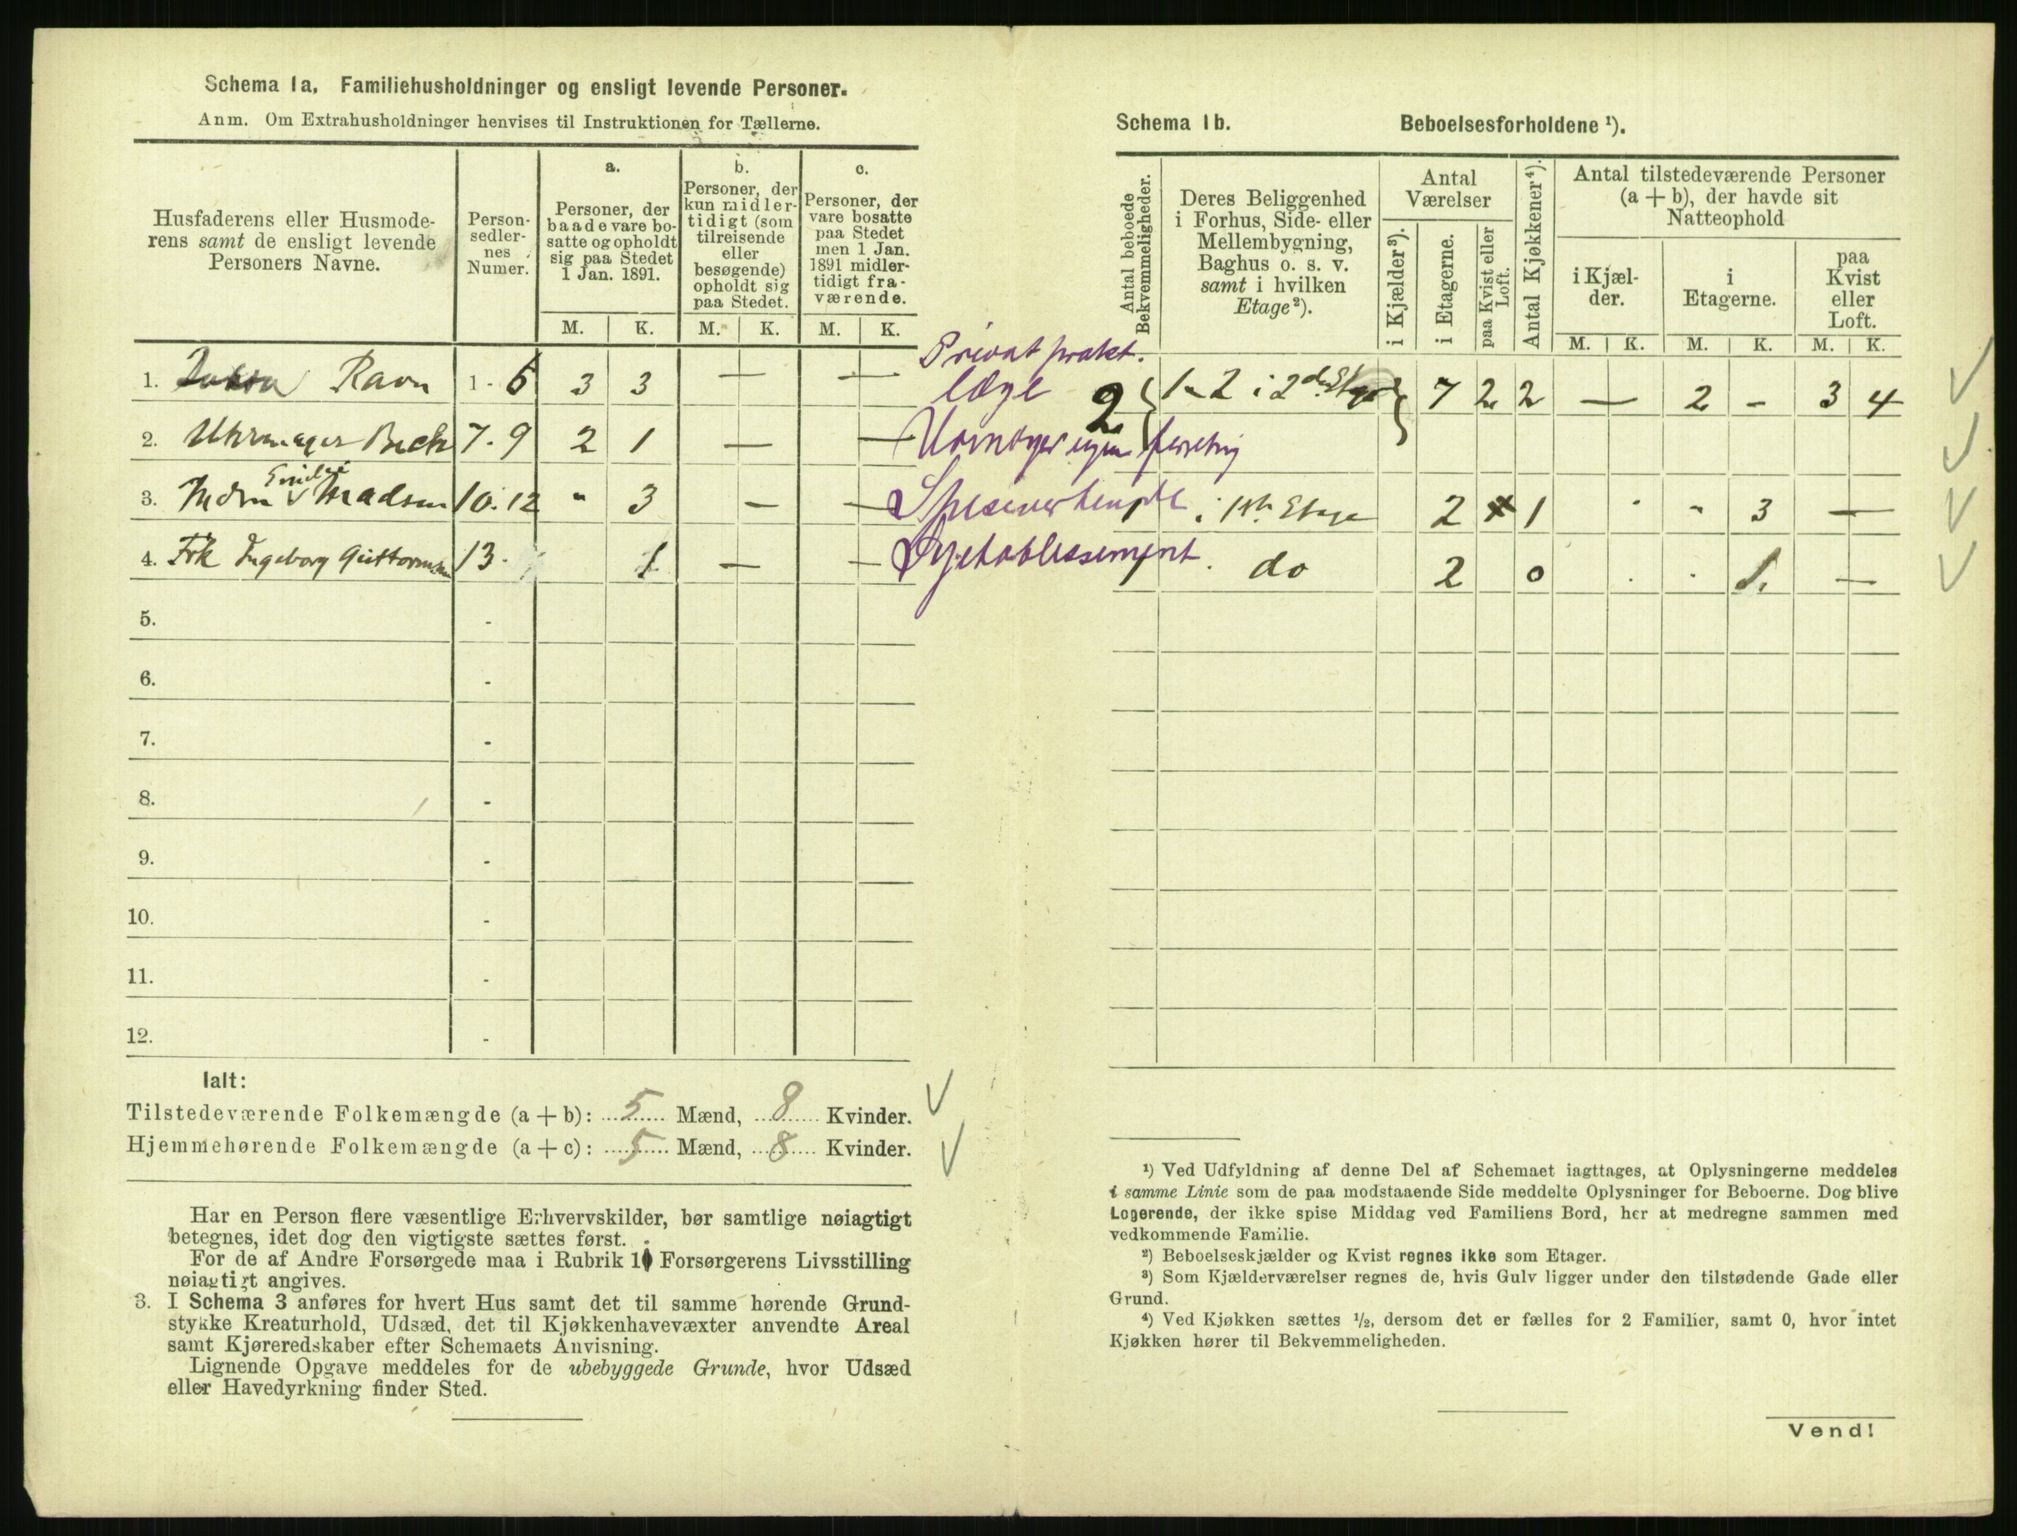 Schema 1a. Familiehusholdninger og ensligt levende Personer.
Anm. Om Extrahusholdninger henvises til Instruktionen for Tællerne.
Husfaderens eller Husmode-
rens samt de ensligt levende
Personers Navne.
Person-
sedler-
nes
Numer.
a.
Personer, der
baade vare bo-
satte og opholdt
sig paa Stedet
1 Jan. 1891.
b.
Personer, der
kun midler-
tidigt (som
tilreisende
eller
besøgende)
opholdt sig
paa Stedet.
c.
Personer, der
vare bosatte
paa Stedet
men 1 Jan.
1891 midler-
tidigt fra-
værende.
M. K. M. K. M. K.
1. Ravn 1 - 6 3 3 — — Privat prakt.
læge
2. Uhrmager Beck 7 - 9 2 1 — —
3. Mdm Emilie Madsen 10 - 12 " 3 — —
4. Frk Ingeborg Guttormsen 13 - 1 — —
5. -
6. -
7. -
8. -
9. -
10. -
11. -
12. -
Ialt:
Tilstedeværende Folkemængde (a + b): 5 Mænd, 8 Kvinder.
Hjemmehørende Folkemængde (a + c): 5 Mænd, 8 Kvinder.
Har en Person flere væsentlige Erhvervskilder, bør samtlige nøiagtigt
betegnes, idet dog den vigtigste sættes først.
For de af Andre Forsørgede maa i Rubrik 10 Forsørgerens Livsstilling
nøiagtigt angives.
3. I Schema 3 anføres for hvert Hus samt det til samme hørende Grund-
stykke Kreaturhold, Udsæd, det til Kjøkkenhavevæxter anvendte Areal
samt Kjøreredskaber efter Schemaets Anvisning.
Lignende Opgave meddeles for de ubebyggede Grunde, hvor Udsæd
eller Havedyrkning finder Sted.
Schema 1b. Beboelsesforholdene ¹).
Antal beboede
Bekvemmeligheder.
Deres Beliggenhed
i Forhus, Side- eller
Mellembygning,
Baghus o. s. v.
samt i hvilken
Etage²).
Antal
Værelser
i Kjælder³).
i Etagerne.
paa Kvist eller
Loft.
Antal Kjøkkener⁴).
Antal tilstedeværende Personer
(a + b), der havde sit
Natteophold
i Kjæl-
der.
i
Etagerne.
paa
Kvist
eller
Loft.
M. K. M. K. M. K.
2 1 - 2 i 2den Etage 7 2 2 — 2 - 3 4
1 i 1ste Etage 2 1 " 3 —
1 do 2 0 1 —
¹) Ved Udfyldning af denne Del af Schemaet iagttages, at Oplysningerne meddeles
i samme Linie som de paa modstaaende Side meddelte Oplysninger for Beboerne. Dog blive
Logerende, der ikke spise Middag ved Familiens Bord, her at medregne sammen med
vedkommende Familie.
²) Beboelseskjælder og Kvist regnes ikke som Etager.
³) Som Kjælderværelser regnes de, hvis Gulv ligger under den tilstødende Gade eller
Grund.
⁴) Ved Kjøkken sættes ½, dersom det er fælles for 2 Familier, samt 0, hvor intet
Kjøkken hører til Bekvemmeligheden.
Vend!